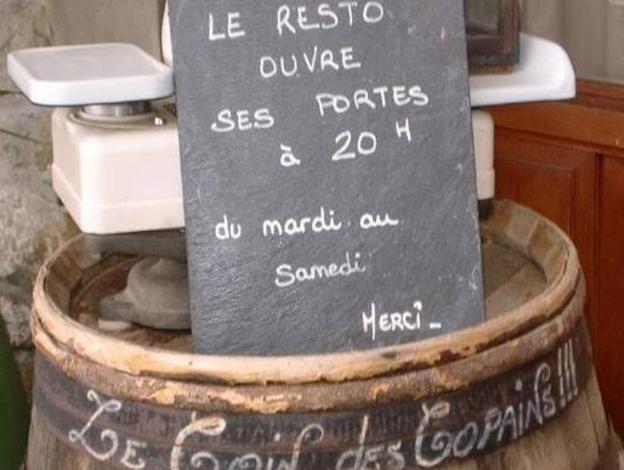 LE RESTO
OUVRE
SES PORTES
à 20 H
du mardi au
Samedi
MERCi_
LE COIN des COPAiNS!!!